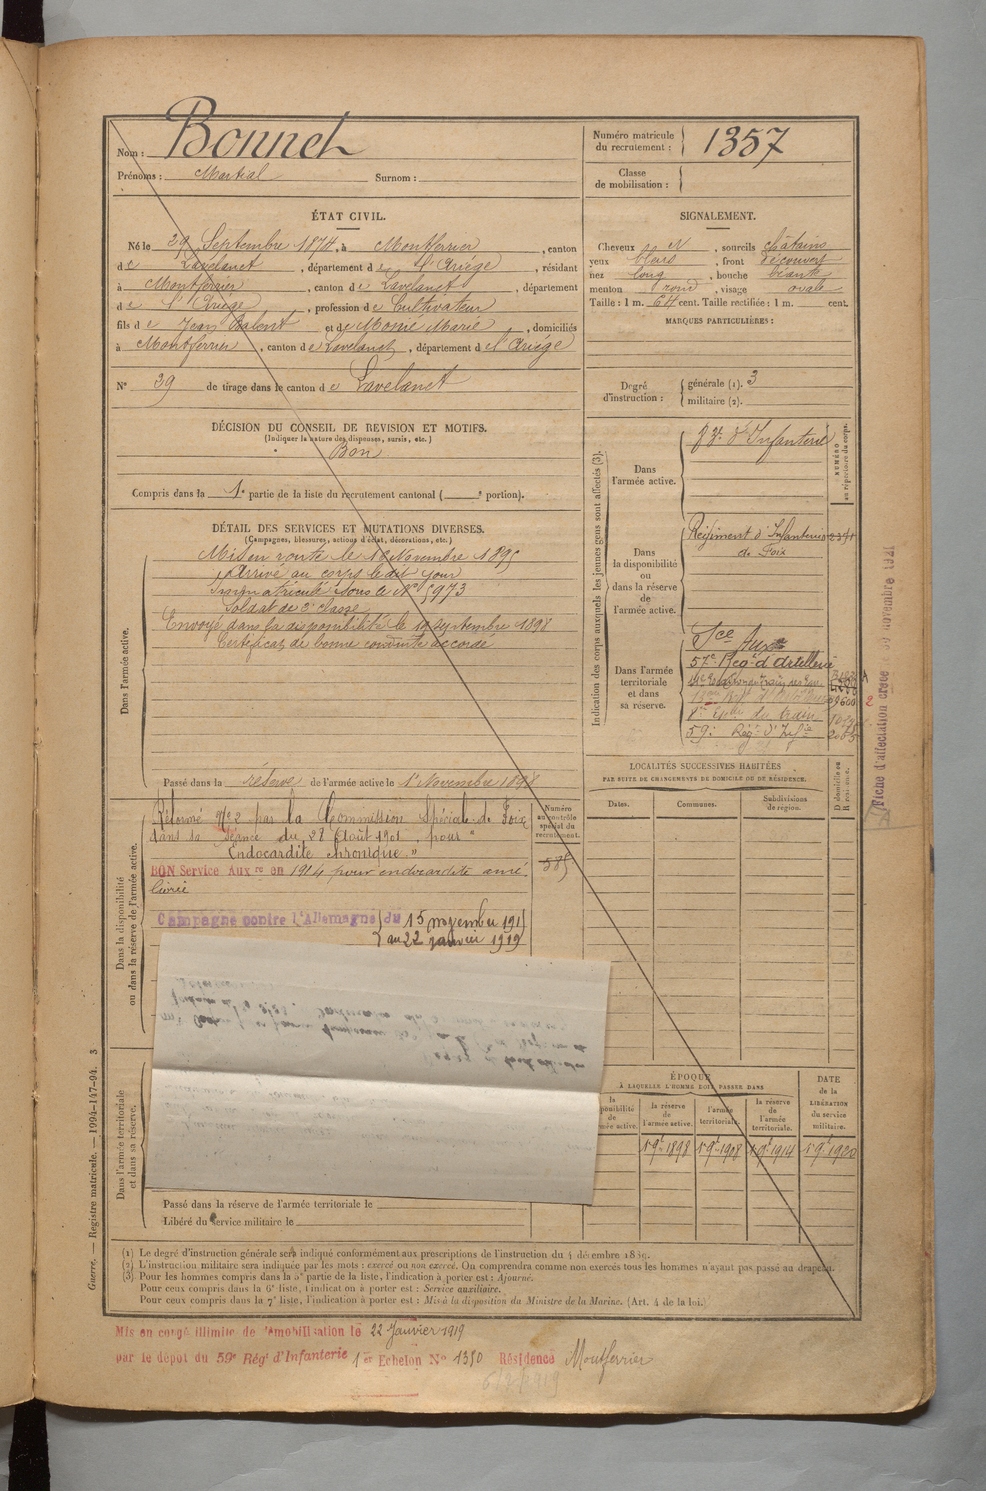 Nom : Bonnet
Prénoms : Martial Surnom :
Numéro matricule du recrutement : 1357
Classe de mobilisation :
ÉTAT CIVIL.
Né le 29 Septembre 1874, à Montferrier, canton
de Lavelanet, département de l'Ariége, résidant
à Montferrier, canton de Lavelanet, département
de l'Ariége, profession de Cultivateur
fils de Jean Balent et de Monié Marie, domiciliés
à Montferrier, canton de Lavelanet, département de l'Ariége
N° 39 de tirage dans le canton de Lavelanet
SIGNALEMENT.
Cheveux N, sourcils châtains
yeux bleus, front découvert
nez long, bouche béante
menton rond, visage ovale
Taille : 1 m. 64 cent. Taille rectifiée : 1 m. cent.
MARQUES PARTICULIÈRES :
Degré d'instruction : générale (1). 3
militaire (2).
DÉCISION DU CONSEIL DE REVISION ET MOTIFS.
(Indiquer la nature des dispenses, sursis, etc.)
Bon
Compris dans la 1e partie de la liste du recrutement cantonal ( e portion).
DÉTAIL DES SERVICES ET MUTATIONS DIVERSES.
(Campagnes, blessures, actions d'éclat, décorations, etc.)
Dans l'armée active.
Mis en route le 16 Novembre 1895
Arrivé au corps le dit jour
Immatriculé sous le N° 5973
Soldat de 2e classe
Envoyé dans la disponibilité le 19 Septembre 1898
Certificat de bonne conduite accordé
Passé dans la réserve de l'armée active le 1er Novembre 1898
Dans la disponibilité
ou dans la réserve de l'armée active.
Réformé n°2 par la Commission Spéciale de Foix
dans sa séance du 28 Août 1901 pour "
Endocardite chronique "
BON Service Auxre en 1914 pour endocardite amé-
liorée
Campagne contre l'Allemagne du 15 novembre 191
au 22 janvier 1919
Numéro au contrôle spécial du recrutement.
585
Dans l'armée territoriale
et dans sa réserve.
Passé dans la réserve de l'armée territoriale le
Libéré du service militaire le
Indication des corps auxquels les jeunes gens sont affectés (3).
NUMÉRO
au répertoire du corps.
Dans l'armée active.
d'Infanterie
Dans la disponibilité ou dans la réserve de l'armée active.
Régiment d'Infanterie
de Foix
Dans l'armée territoriale et dans sa réserve.
Sce Auxre
57e Reg. d'Artillerie
59e Reg. d'Infie
Fiche d'affectation créée le 30 novembre 1921
LOCALITÉS SUCCESSIVES HABITÉES
PAR SUITE DE CHANGEMENTS DE DOMICILE OU DE RÉSIDENCE.
Dates. Communes. Subdivisions de région.
D domicile ou R résidence.
ÉPOQUE
À LAQUELLE L'HOMME DOIT PASSER DANS
la réserve de l'armée active. l'armée territoriale. la réserve de l'armée territoriale.
DATE de la LIBÉRATION du service militaire.
1 9e 1898 1 9e 1908 1 9e 1914 1 9e 1920
(1) Le degré d'instruction générale sera indiqué conformément aux prescriptions de l'instruction du 4 décembre 1889.
(2) L'instruction militaire sera indiquée par les mots : exercé ou non exercé. On comprendra comme non exercés tous les hommes n'ayant pas passé au drapeau.
(3) Pour les hommes compris dans la 5e partie de la liste, l'indication à porter est : Ajourné.
Pour ceux compris dans la 6e liste, l'indication à porter est : Service auxiliaire.
Pour ceux compris dans la 7e liste, l'indication à porter est : Mis à la disposition du Ministre de la Marine. (Art. 4 de la loi.)
Guerre. — Registre matricule. — 1994-147-94. 3
Mis en congé illimité de démobilisation le 22 Janvier 1919
par le dépôt du 59e Régt d'Infanterie 1er Echelon N° 1350 Résidence Montferrier
6/2/1919